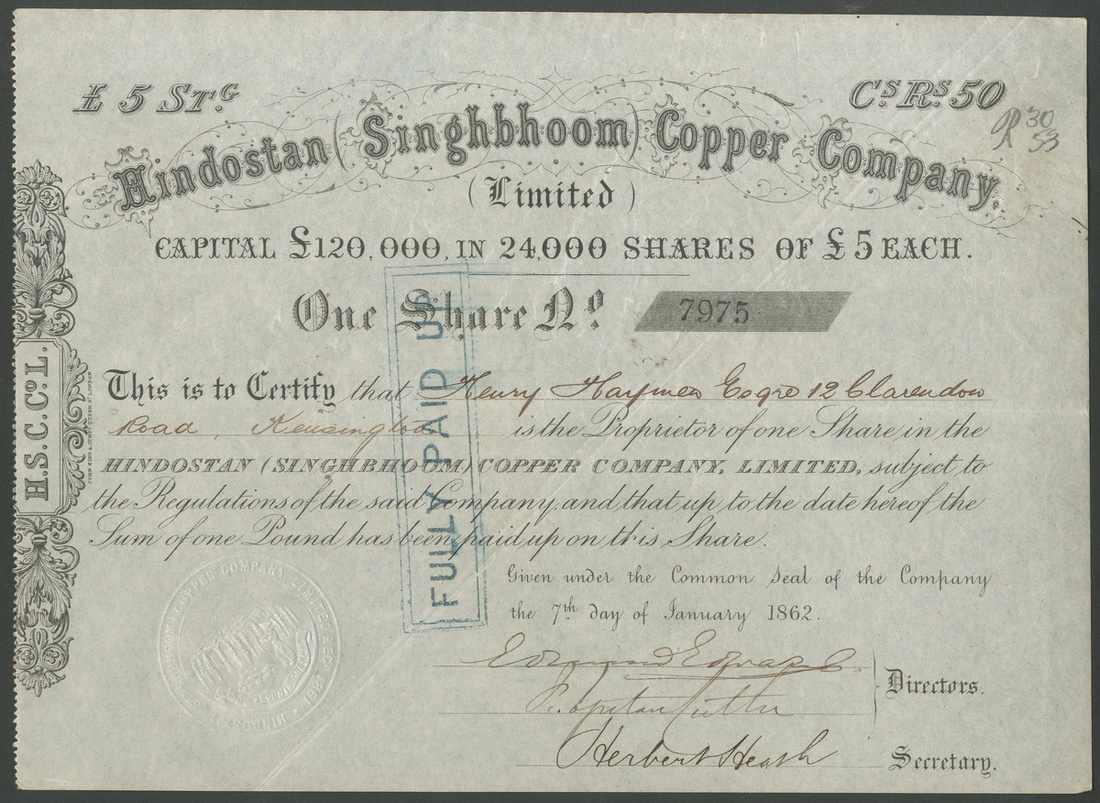 £ 5 STG
Cs Rs 50
30
53
Hindostan (Singhbhoom) Copper Company.
(Limited)
CAPITAL £120,000, IN 24,000 SHARES OF £5 EACH.
One Share No. 7975
This is to Certify that Henry Haymen Esqre 12 Clarendon
Road, Kensington is the Proprietor of one Share in the
HINDOSTAN (SINGHBHOOM) COPPER COMPANY, LIMITED, subject to
the Regulations of the said Company, and that up to the date hereof the
Sum of one Pound has been paid up on this Share.
FULLY PAID UP
Given under the Common Seal of the Company
the 7th day of January 1862.
Directors.
Herbert Heath
Secretary.
H.S.C.Co L.
COPPER COMPANY LIMITED